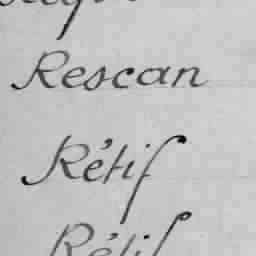 Rescan
Rétif
Rétif